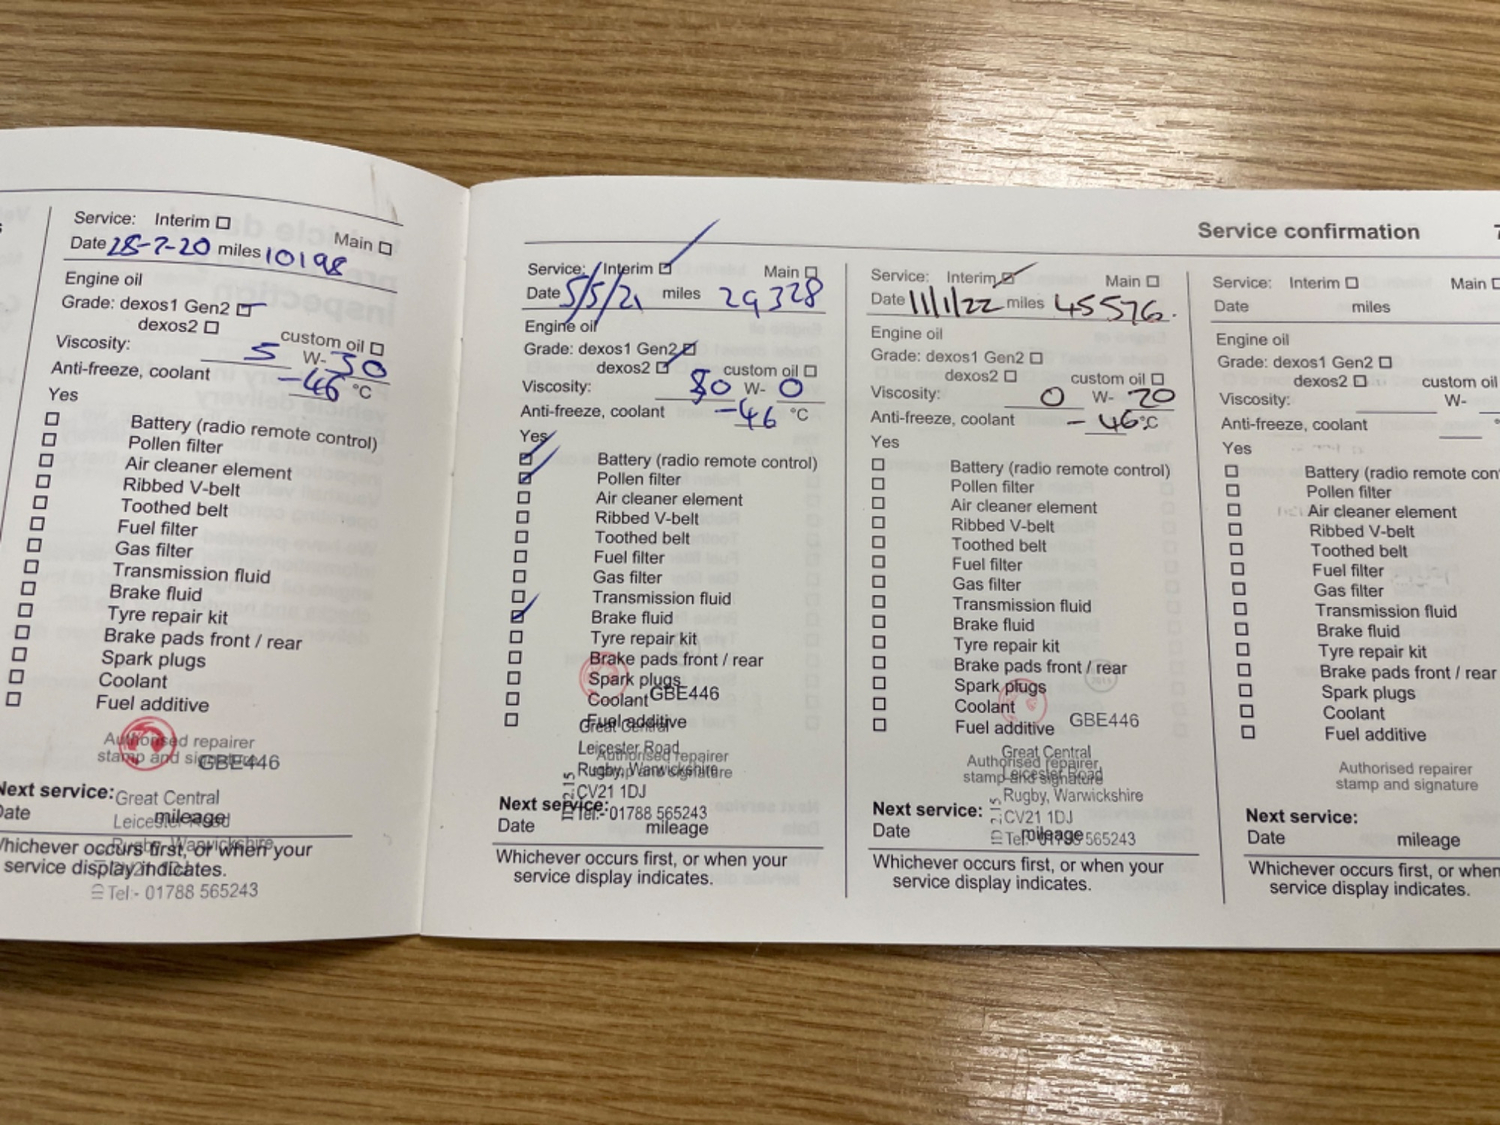 Service: Interim
Main
Date 28-7-20 miles 10198
Engine oil
Grade: dexos1 Gen2
dexos2
custom oil
Viscosity: 5 W- 30
Anti-freeze, coolant -46 °C
Yes
Battery (radio remote control)
Pollen filter
Air cleaner element
Ribbed V-belt
Toothed belt
Fuel filter
Gas filter
Transmission fluid
Brake fluid
Tyre repair kit
Brake pads front / rear
Spark plugs
Coolant
Fuel additive
Authorised repairer
stamp and signature
GBE446
Next service:
Great Central
Date mileage
Leicester Road
Rugby, Warwickshire
Whichever occurs first, or when your
service display indicates.
Tel:- 01788 565243
Service confirmation 7
Service: Interim Main
Date 5/5/21 miles 29328
Engine oil
Grade: dexos1 Gen2
dexos2 custom oil
Viscosity: W- 0
Anti-freeze, coolant -46 °C
Yes
Battery (radio remote control)
Pollen filter
Air cleaner element
Ribbed V-belt
Toothed belt
Fuel filter
Gas filter
Transmission fluid
Brake fluid
Tyre repair kit
Brake pads front / rear
Spark plugs
Coolant GBE446
Fuel additive
Great Central
Leicester Road
Authorised repairer
Rugby, Warwickshire
stamp and signature
CV21 1DJ
Next service:
Tel:- 01788 565243
Date mileage
Whichever occurs first, or when your
service display indicates.
Service: Interim Main
Date 11/1/22 miles 45576.
Engine oil
Grade: dexos1 Gen2
dexos2 custom oil
Viscosity: 0 W- 20
Anti-freeze, coolant -46 °C
Yes
Battery (radio remote control)
Pollen filter
Air cleaner element
Ribbed V-belt
Toothed belt
Fuel filter
Gas filter
Transmission fluid
Brake fluid
Tyre repair kit
Brake pads front / rear
Spark plugs
Coolant
Fuel additive GBE446
Great Central
Authorised repairer
stamp and signature
Leicester Road
Rugby, Warwickshire
Next service:
CV21 1DJ
Date mileage
Tel:- 01788 565243
Whichever occurs first, or when your
service display indicates.
Service: Interim Main
Date miles
Engine oil
Grade: dexos1 Gen2
dexos2 custom oil
Viscosity: W-
Anti-freeze, coolant
Yes
Battery (radio remote
Pollen filter
Air cleaner element
Ribbed V-belt
Toothed belt
Fuel filter
Gas filter
Transmission fluid
Brake fluid
Tyre repair kit
Brake pads front / rear
Spark plugs
Coolant
Fuel additive
Authorised repairer
stamp and signature
Next service:
Date mileage
Whichever occurs first, or when
service display indicates.